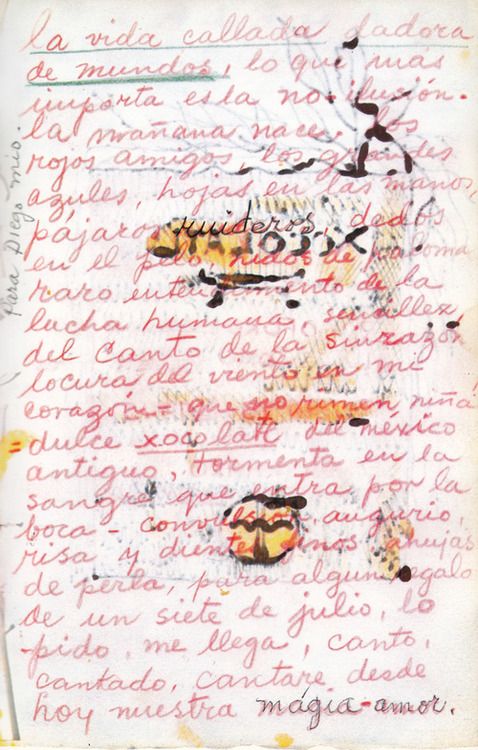 la vida callada dadora
de mundos, lo que más
importa es la no-ilusión.
la mañana nace, los
rojos amigos, los grandes
azules, hojas en las manos,
pájaros ruideros, dedos
en el pelo, nidos de paloma
raro entendimiento de la
lucha humana, sencillez
del canto de la sinrazón
locura del viento en mi
corazón = que no rimen, niña
= dulce xocolatl del mexico
antiguo, tormenta en la
sangre que entra por la
boca - convulsión, augurio,
risa y dientes finos agujas
de perla, para algun regalo
de un siete de julio, lo
pido, me llega, canto,
cantado, cantaré desde
hoy nuestra mágia - amor.
Para Diego mio.